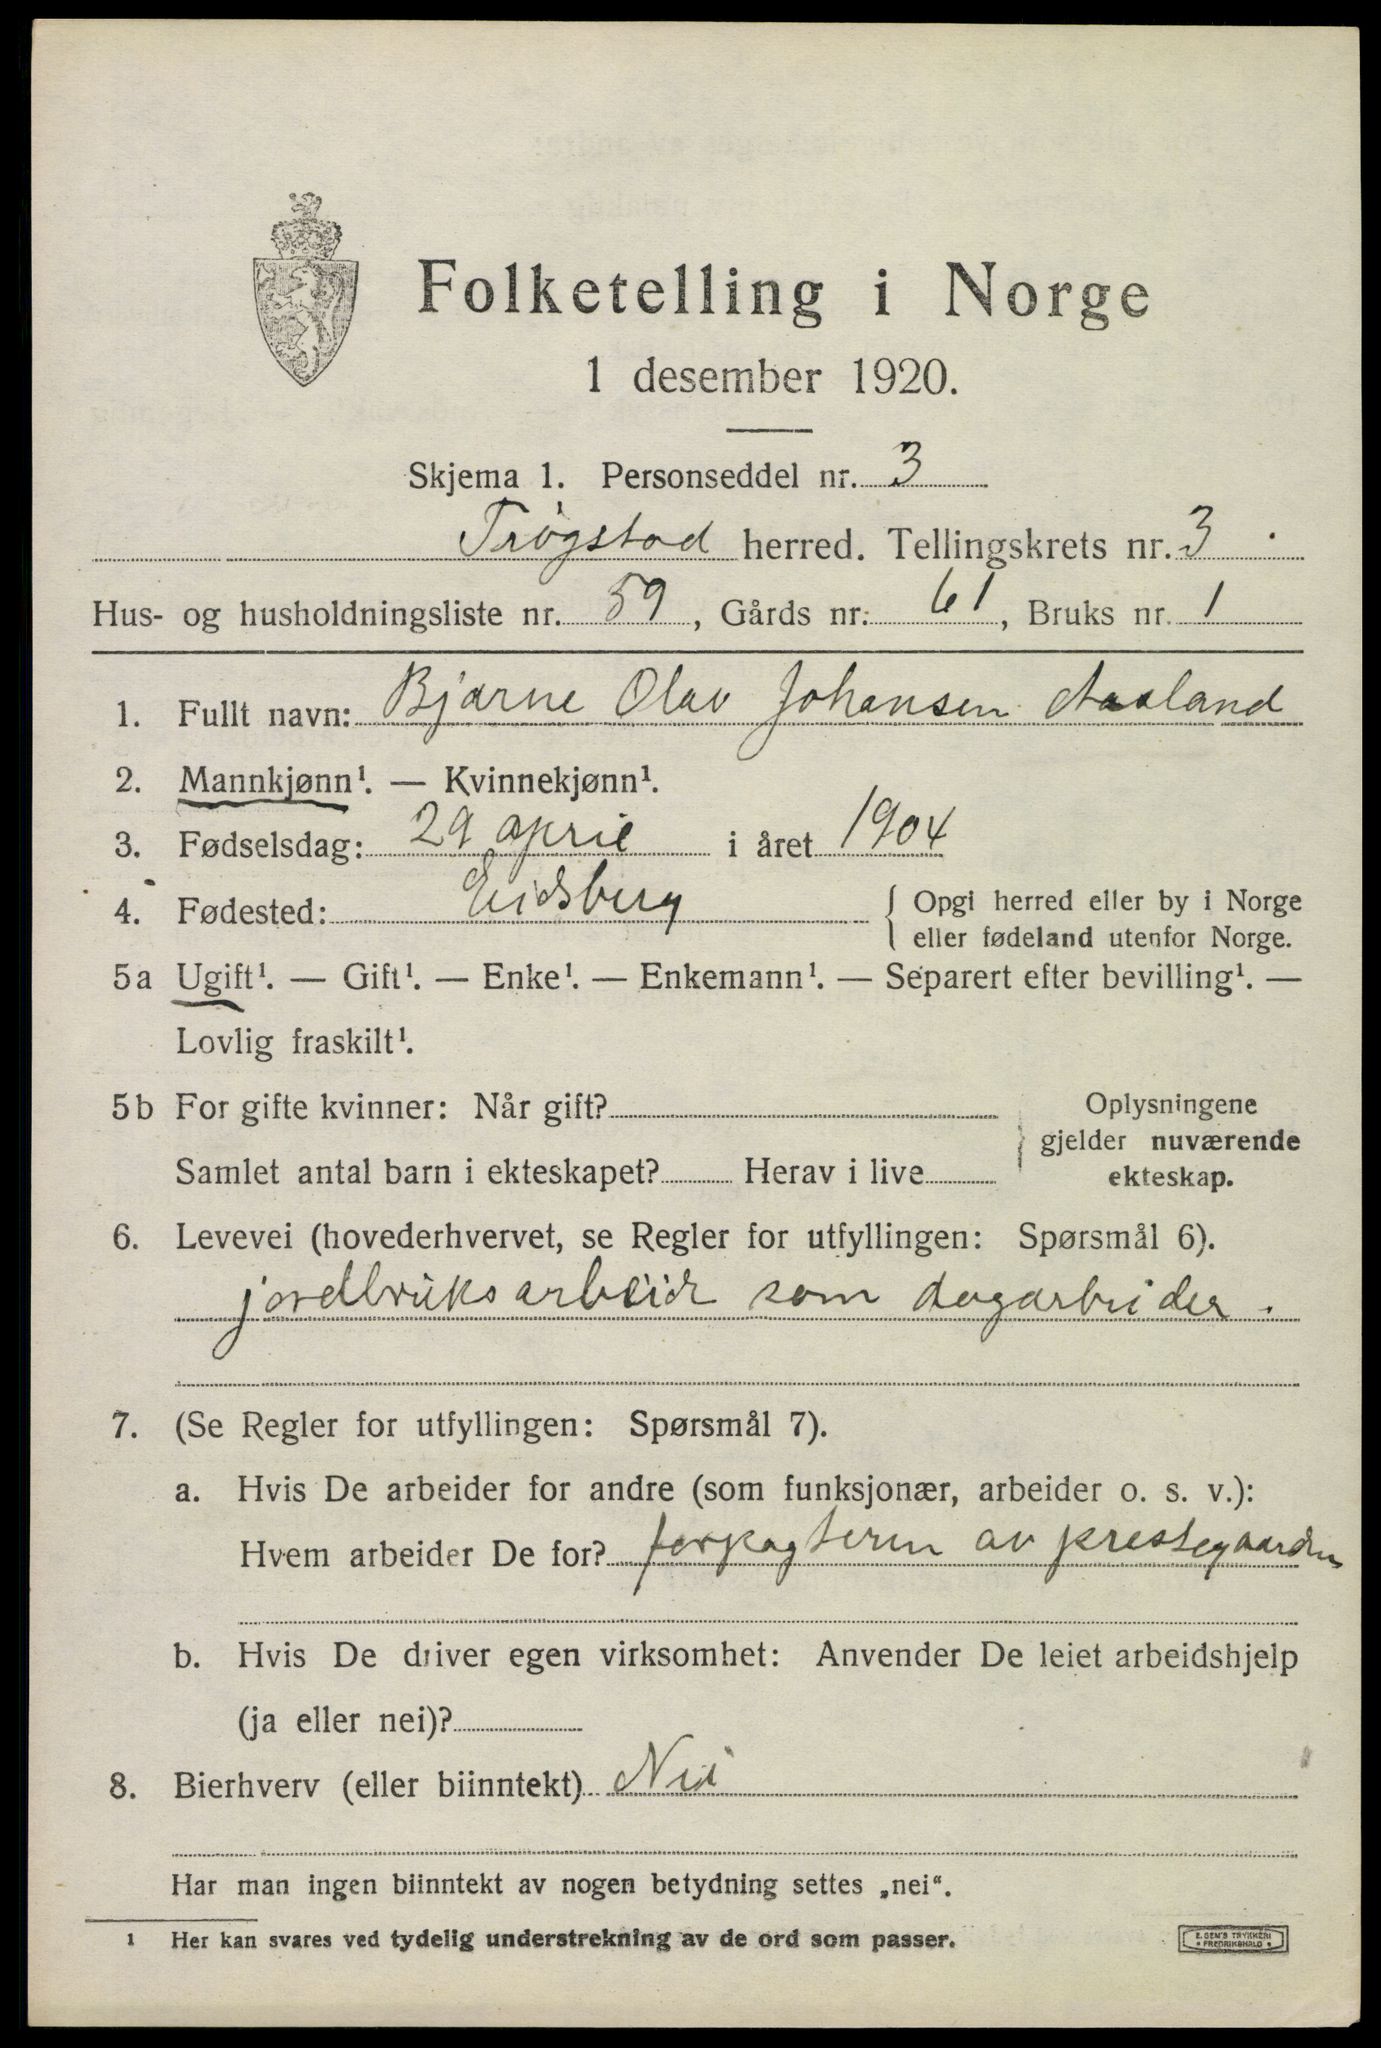 Folketelling i Norge
1 desember 1920.
Skjema 1. Personseddel nr. 3
Trøgstad herred. Tellingskrets nr. 3.
Hus- og husholdningsliste nr. 59, Gårds nr. 61, Bruks nr. 1
1. Fullt navn: Bjarne Olav Johansen Aasland
2. Mannkjønn¹. — Kvinnekjønn¹.
3. Fødselsdag: 29 april i året 1904
4. Fødested: Eidsberg { Opgi herred eller by i Norge
eller fødeland utenfor Norge.
5a Ugift¹. — Gift¹. — Enke¹. — Enkemann¹. — Separert efter bevilling¹. —
Lovlig fraskilt¹.
5b For gifte kvinner: Når gift?
Samlet antal barn i ekteskapet? Herav i live
} Oplysningene
gjelder nuværende
ekteskap.
6. Levevei (hovederhvervet, se Regler for utfyllingen: Spørsmål 6).
jordbruksarbeide som dagarbeider.
7. (Se Regler for utfyllingen: Spørsmål 7).
a. Hvis De arbeider for andre (som funksjonær, arbeider o. s. v.):
Hvem arbeider De for? forpagteren av prestegaarden
b. Hvis De driver egen virksomhet: Anvender De leiet arbeidshjelp
(ja eller nei)?
8. Bierhverv (eller biinntekt) Nei
Har man ingen biinntekt av nogen betydning settes „nei“.
1 Her kan svares ved tydelig understrekning av de ord som passer.
E. SEM'S TRYKKERI
• FREDRIKSHALD •